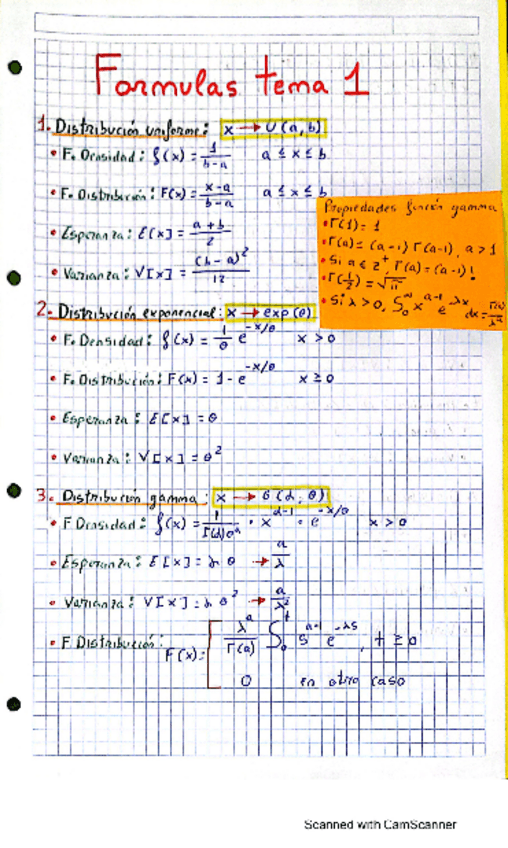 Formulas tema 1
1. Distribución uniforme: x → U(a,b)
• F. Densidad: f(x) = 1/(b-a)   a ≤ x ≤ b
• F. Distribución: F(x) = (x-a)/(b-a)   a ≤ x ≤ b
• Esperanza: E[x] = (a+b)/2
• Varianza: V[x] = (b-a)²/12
Propiedades función gamma
• Γ(1) = 1
• Γ(a) = (a-1) Γ(a-1), a > 1
• Si a ∈ Z⁺, Γ(a) = (a-1)!
• Γ(1/2) = √π
• Si λ > 0, ∫₀^∞ x^(a-1) e^(-λx) dx = Γ(a)/λ^a
2. Distribución exponencial: x → exp(θ)
• F. Densidad: f(x) = 1/θ e^(-x/θ)   x > 0
• F. Distribución: F(x) = 1 - e^(-x/θ)   x ≥ 0
• Esperanza: E[x] = θ
• Varianza: V[x] = θ²
3. Distribución gamma: x → G(α, θ)
• F. Densidad: f(x) = 1/(Γ(α)θ^α) · x^(α-1) · e^(-x/θ)   x > 0
• Esperanza: E[x] = α θ → a/λ
• Varianza: V[x] = α θ² → a/λ²
• F. Distribución: F(x) = { λ^a/Γ(a) ∫₀^t s^(a-1) e^(-λs), t ≥ 0
0   en otro caso
Scanned with CamScanner